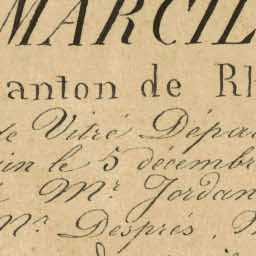 MARCIL
anton de Rh
de Vitré Dépa
in le 5 décembr
Mr. Jordan
Mr. Després.